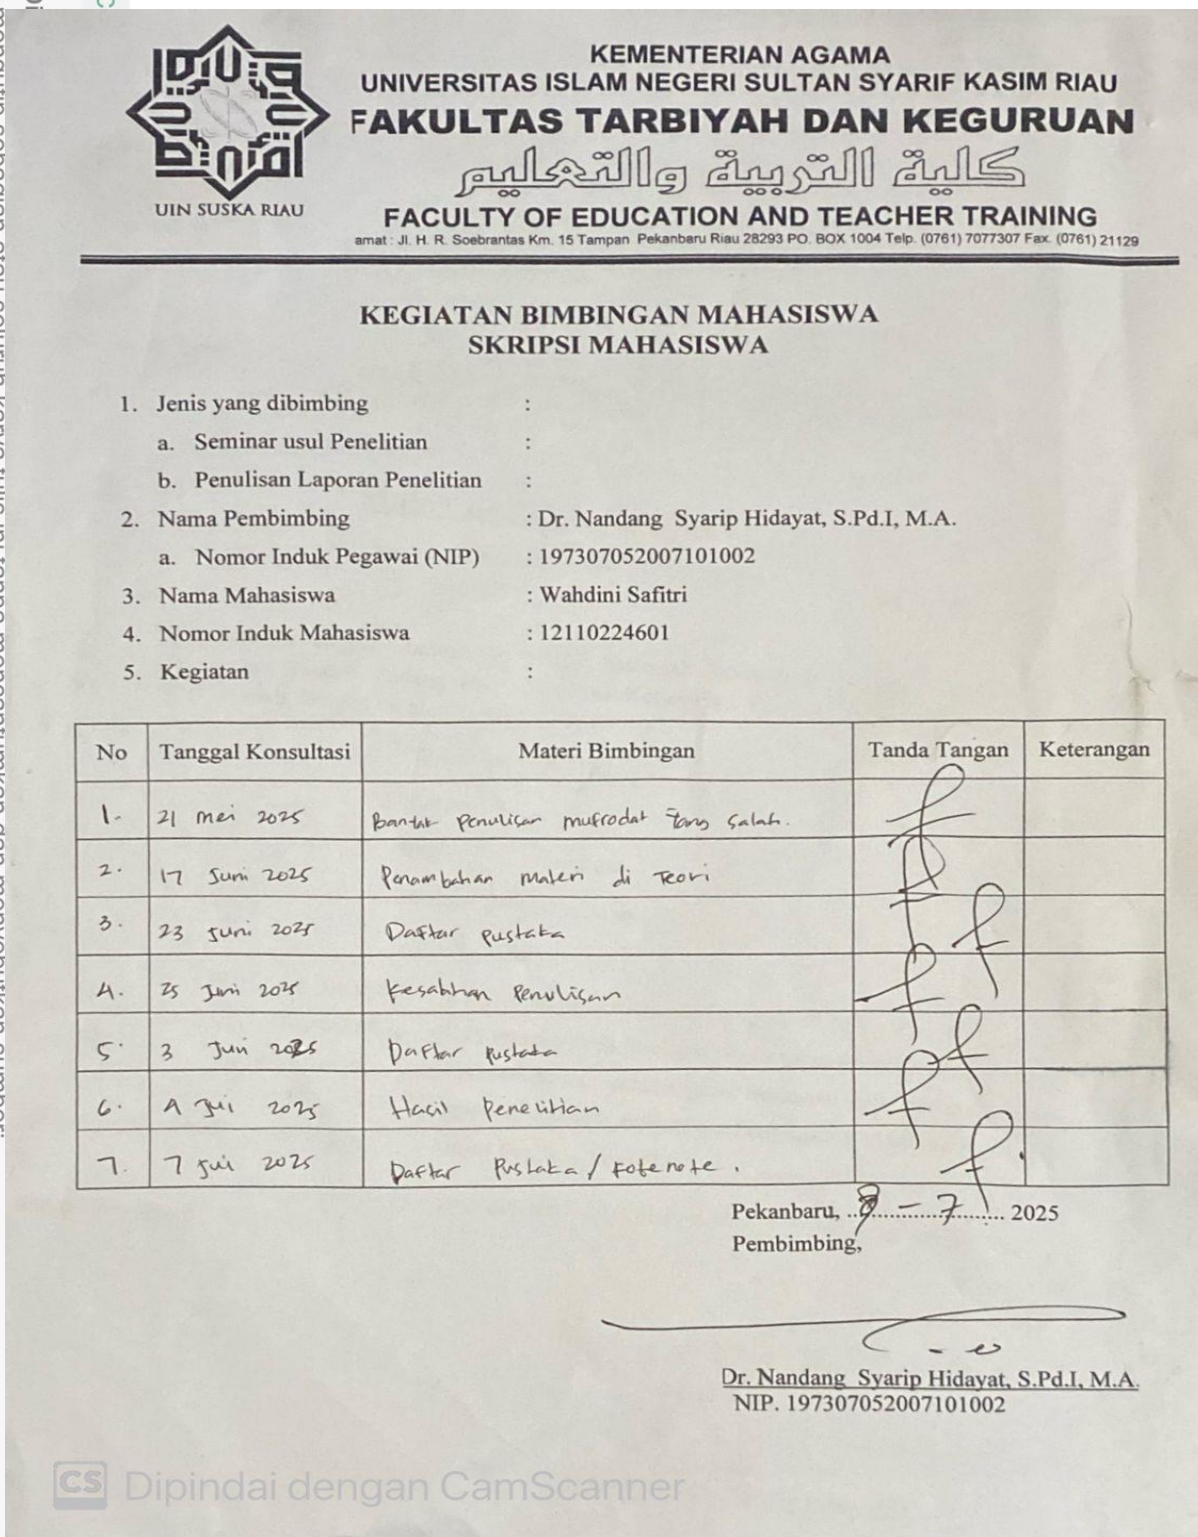 UIN SUSKA RIAU
KEMENTERIAN AGAMA
UNIVERSITAS ISLAM NEGERI SULTAN SYARIF KASIM RIAU
FAKULTAS TARBIYAH DAN KEGURUAN
كلية التربية والتعليم
FACULTY OF EDUCATION AND TEACHER TRAINING
amat : Jl. H. R. Soebrantas Km. 15 Tampan Pekanbaru Riau 28293 PO. BOX 1004 Telp. (0761) 7077307 Fax. (0761) 21129
KEGIATAN BIMBINGAN MAHASISWA
SKRIPSI MAHASISWA
1. Jenis yang dibimbing :
a. Seminar usul Penelitian :
b. Penulisan Laporan Penelitian :
2. Nama Pembimbing : Dr. Nandang Syarip Hidayat, S.Pd.I, M.A.
a. Nomor Induk Pegawai (NIP) : 197307052007101002
3. Nama Mahasiswa : Wahdini Safitri
4. Nomor Induk Mahasiswa : 12110224601
5. Kegiatan :
No Tanggal Konsultasi Materi Bimbingan Tanda Tangan Keterangan
1. 21 mei 2025 penulisan mufrodat yang salah.
2. 17 Juni 2025 Penambahan materi di Teori
3. 23 Juni 2025 Daftar pustaka
4. 25 Juni 2025 Penulisan
5. 3 2025 Daftar pustaka
6. 4 2025 Hasil Penelitian
7. 7 2025 Daftar Pustaka / Fotenote.
Pekanbaru, 8 - 7 2025
Pembimbing,
Dr. Nandang Syarip Hidayat, S.Pd.I, M.A.
NIP. 197307052007101002
CS Dipindai dengan CamScanner